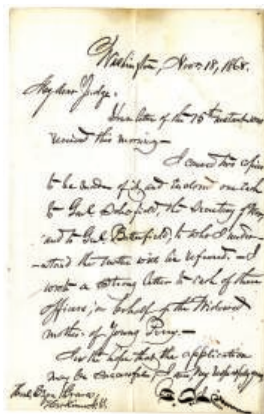 Washington, Nov. 18, 1868.
My dear Judge.
Your letter of the 15th instant was
received this morning—
I caused two copies
to be made of it, and enclosed one each
to Genl Schofield, the Secretary of War,
and to Genl Butterfield, to who I under-
-stand the matter will be referred. — I
wrote a strong letter to each of these
officers, in behalf of the Widowed
mother of Young Perry.—
In the hope that the application
may be successful, I am, very
Ezra Graves,
Herkimer N.Y.